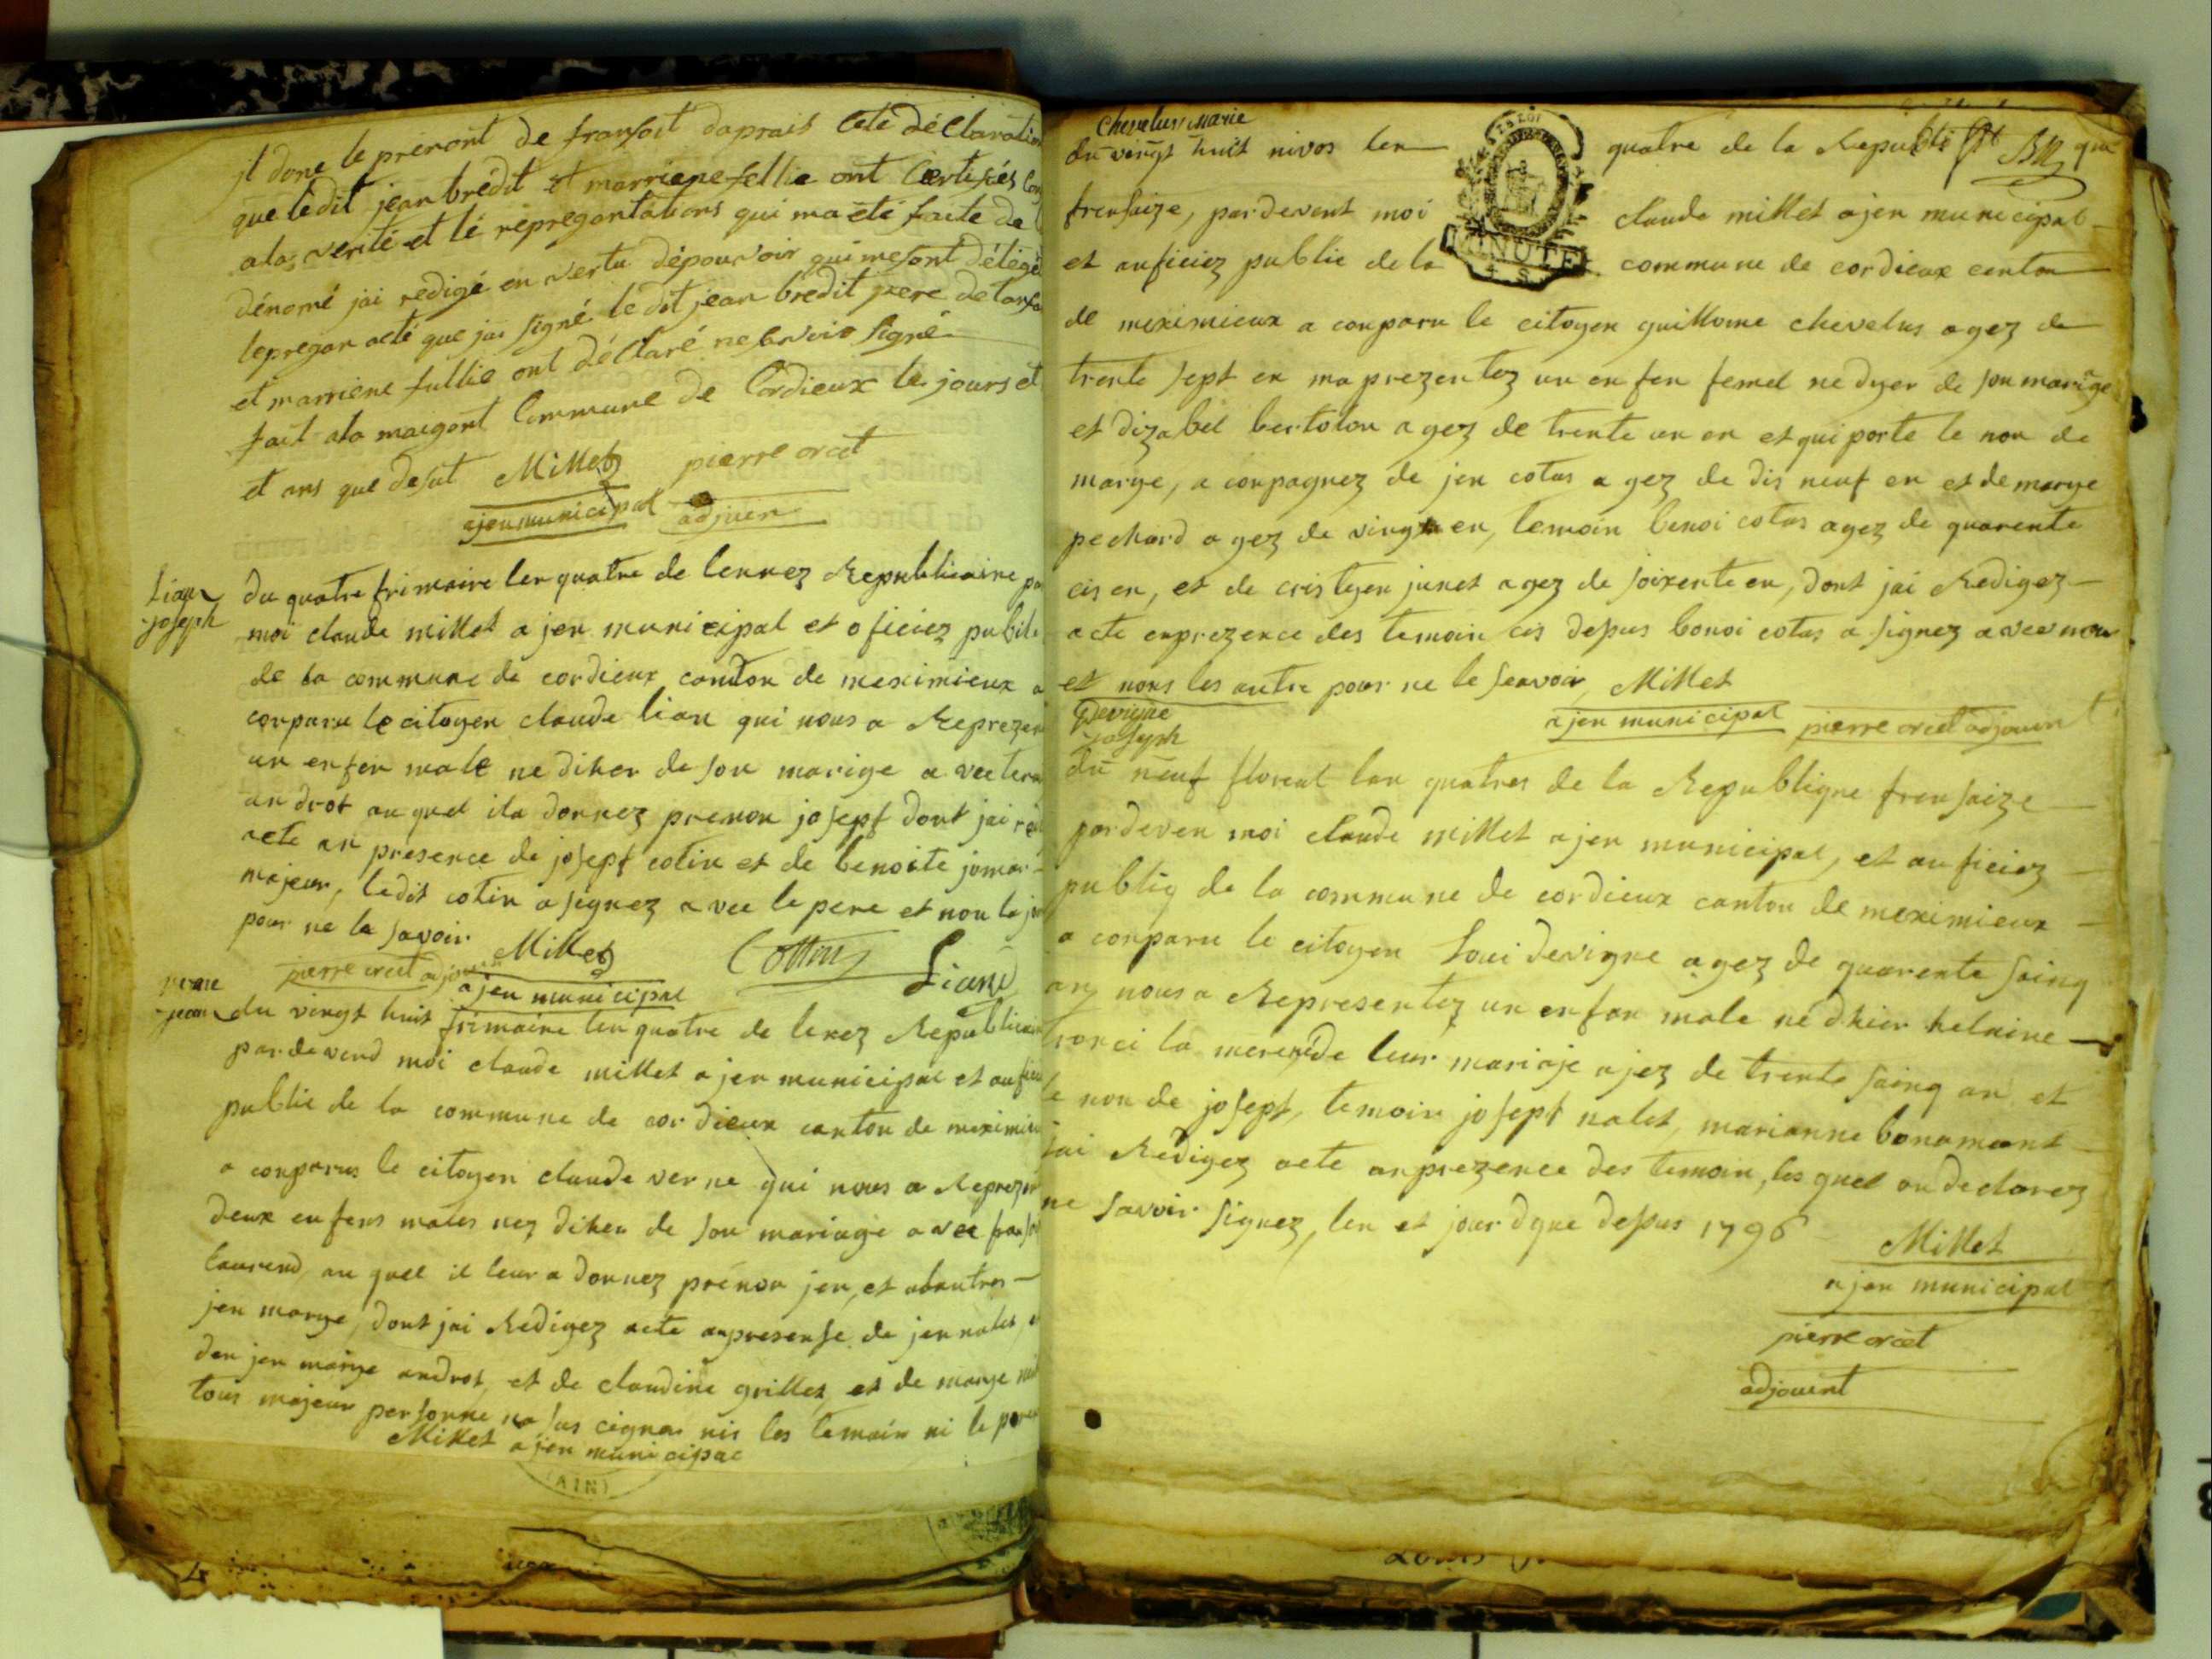 jl done le prenont de fransoit daprais cete déclaration
que ledit jean brédit et marriene fellie ont Certifiés
ala vérité et lé repregantations qui ma eté faite de
dénomé jai redigé en vertu dépouvoir qui me sont délégé
lepregan acté que jai signé le dit jean bredit pere de
et marriene fullie ont déclaré ne savoir signé
fait ala maigont Commune de Cordieux les jours et
et ans que desut Millet pierre orcet
ajen municipal adjuen
Lian
joseph
du quatre frimaire len quatre de lennez Republicaine
moi claude millet a jen municipal et oficiez public
de la commune de cordieux canton de meximieux a
conparu le citoyen claude lian qui nous a Reprezen
un enfen male ne diher de son marige avec
androt auquel ila donnez prenon josepf dont jai
acte an presence de josepf cotin et de benoite jomar
majeur, ledit cotin a signez avec le pere et non la
pour ne le savoir. Millet Cottin Liand
pierre orcet adjouin ajen municipal
verne
jean
du vingt huit frimaire len quatre de lenez Republicain
pardevend moi claude millet ajen municipal et
public de la commune de cordieux canton de meximieu
a conparus le citoyen claude verne qui nous a Reprezen
deux enfens males nez diher de son mariage avec
laurend, au quel il leur a donnez prénon jen, et alautres
jen marye, dont jai Redigez acte anpresense de jen nalet,
den jen marye androt, et de claudine grillet, et de marye
tous majeur personne na sus cigner nis les temoin ni le
Millet ajen municipal
(AIN)
Chevelus Marie
du vingt huit nivos len quatre de la Republi que
frensaize, pardevent moi claude millet ajen municipal
MINUTE
et auficiez public de la commune de cordieux canton
de meximieux a conparu le citoyen guillome chevelus agez de
trente sept en ma prezentez un enfen femel ne dyer de son marige
et dizabel bertolon agez de trente un en et qui porte le non de
marye, a conpagnez de jen cotus agez de dis neuf en et de marye
pechard agez de vingt en, temoin benoi cotus agez de quarente
cis en, et de cristyen junet agez de soixente en, dont jai Redigez
acte enprezence des temoin cis depus benoi cotus a signez avec nou
et nons les autre pour ne le seavoir, Millet
ajen municipal pierre orcet adjouint
Devigne
joseph
du neuf floreal lan quatres de la Republigne frensaize
pardeven moi claude millet ajen municipal, et auficiez
publiq de la commune de cordieux canton de meximieux
a conparu le citoyen Loui devigne agez de quarente sainq
an, nous a Representez un enfan male né dhier helaine
ronci la mere de leur mariaje ajez de trente sainq an et
le non de josepf, temoin josepf nalet, marianne bonamant
jai Redigez acte anprezence des temoin, les quel on declarez
ne savoir signez, len et jour dque depus 1796
Millet
ajen municipal
pierre orcet
adjouint